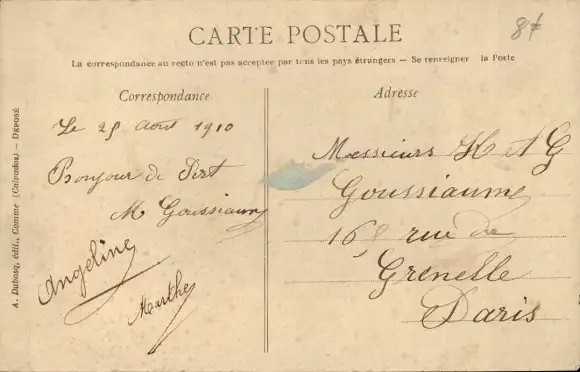 CARTE POSTALE
8f
La correspondance au recto n'est pas acceptée par tous les pays étrangers — Se renseigner la Poste
Correspondance
Le 25 Août 1910
Bonjour de Port
M Goussiaume
Angeline
Marthe
Adresse
Messieurs H et G
Goussiaume
168 rue de
Grenelle
Paris
A. Dubosq, édit., (Calvados) — DÉPOSÉ